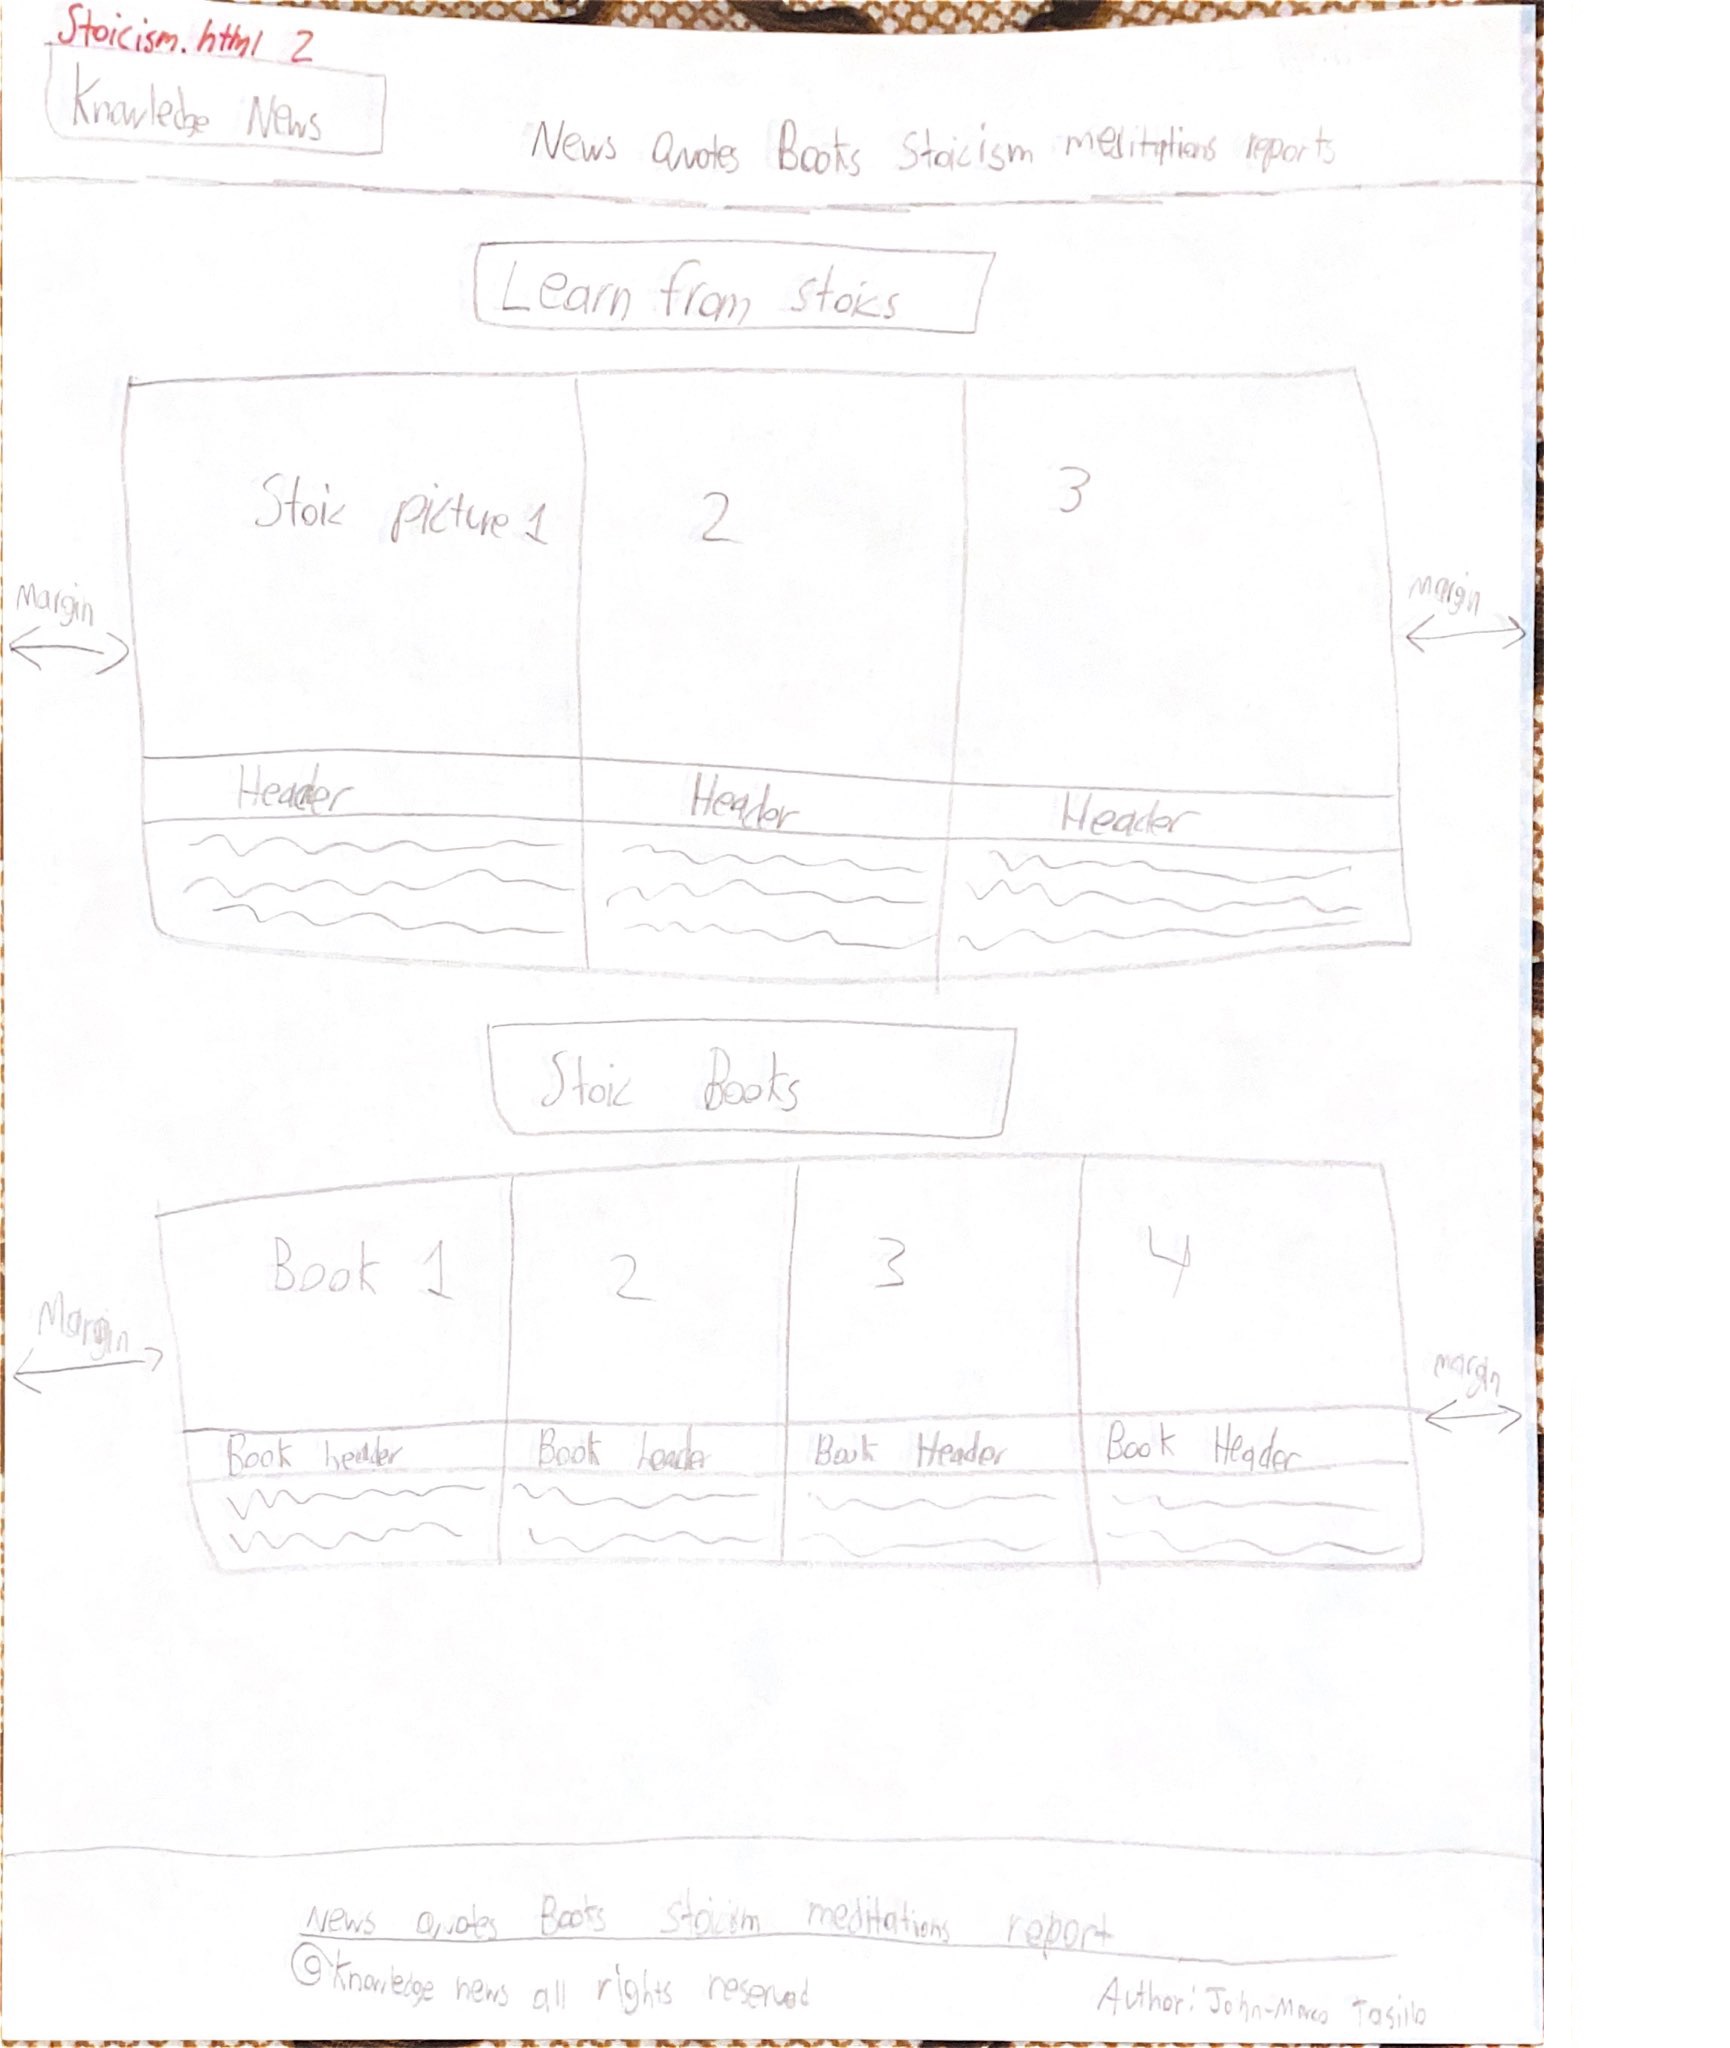 Stoicism.html 2
Knowledge News
News Quotes Books Stoicism meditations reports
Learn from stoiks
Stoic picture 1 2 3
margin margin
Header Header Header
Stoic Books
Book 1 2 3 4
Margin margin
Book header Book header Book Header Book Header
News quotes Books stoicism meditations report
@ Knowledge news all rights reserved Author: John-Marco Tasillo